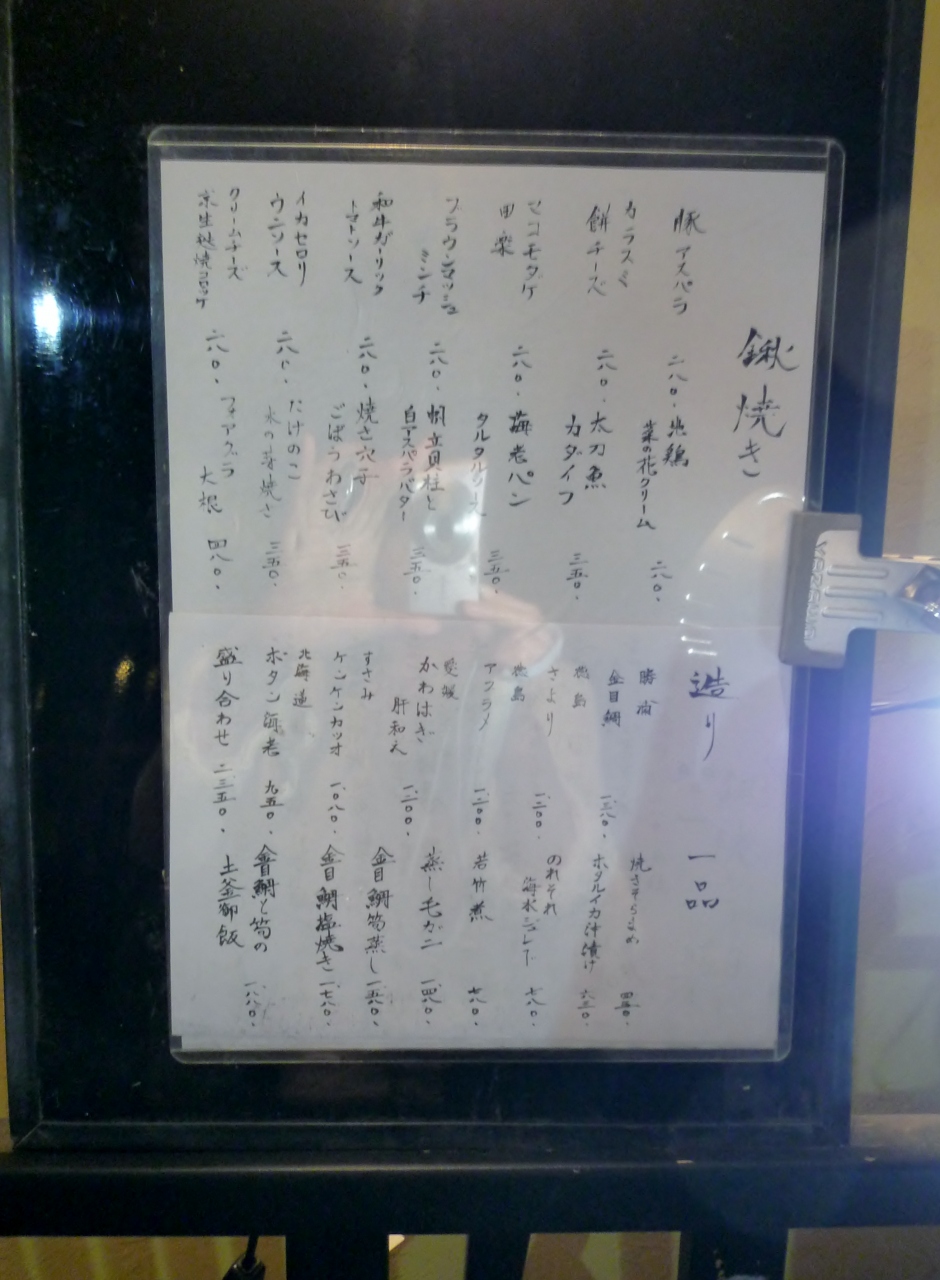 鍬焼き
豚アスパラ 二八〇.
カラスミ
餅チーズ 二八〇.
マコモダケ
田楽 二八〇.
ブラウンマッシュ
ミンチ 二八〇.
和牛ガーリック
トマトソース 二八〇.
イカセロリ
ウニソース 二八〇.
クリームチーズ
京生麩焼コロッケ 二八〇.
地鶏
菜の花クリーム 二八〇.
太刀魚
カダイフ 三五〇.
海老パン
タルタルソース 三五〇.
帆立貝柱と
白アスパラバター 三五〇.
焼き穴子
ごぼうわさび 三五〇.
たけのこ
木の芽焼き 三五〇.
フォアグラ
大根 四八〇.
造り
勝浦
金目鯛 一三八〇.
徳島
さより 一二〇〇.
徳島
アブラメ 一二〇〇.
愛媛
かわはぎ
肝和え 一二〇〇.
すさみ
ケンケンカツオ 一〇八〇.
北海道
ボタン海老 九五〇.
盛り合わせ 二三五〇.
一品
焼きそらまめ 四五〇.
ホタルイカ沖漬け 六三〇.
のれそれ
海水ジュレ 七八〇.
若竹煮 七八〇.
蒸し毛ガニ 一四八〇.
金目鯛筍蒸し 一五八〇.
金目鯛塩焼き 一七八〇.
金目鯛と筍の
土釜御飯 一八八〇.